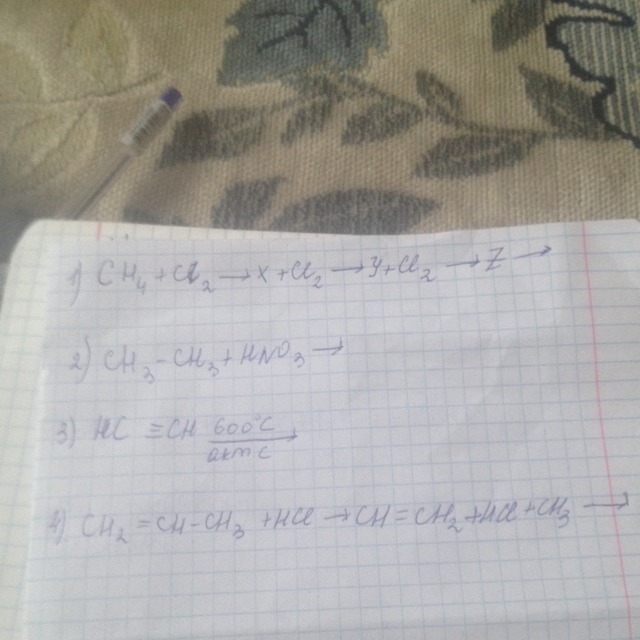 1) CH₄ + Cl₂ → X + Cl₂ → Y + Cl₂ → Z →
2) CH₃ – CH₃ + HNO₃ →
3) HC ≡ CH 600°C акт С →
4) CH₂ = CH – CH₃ + HCl → CH = CH₂ + HCl + CH₃ →